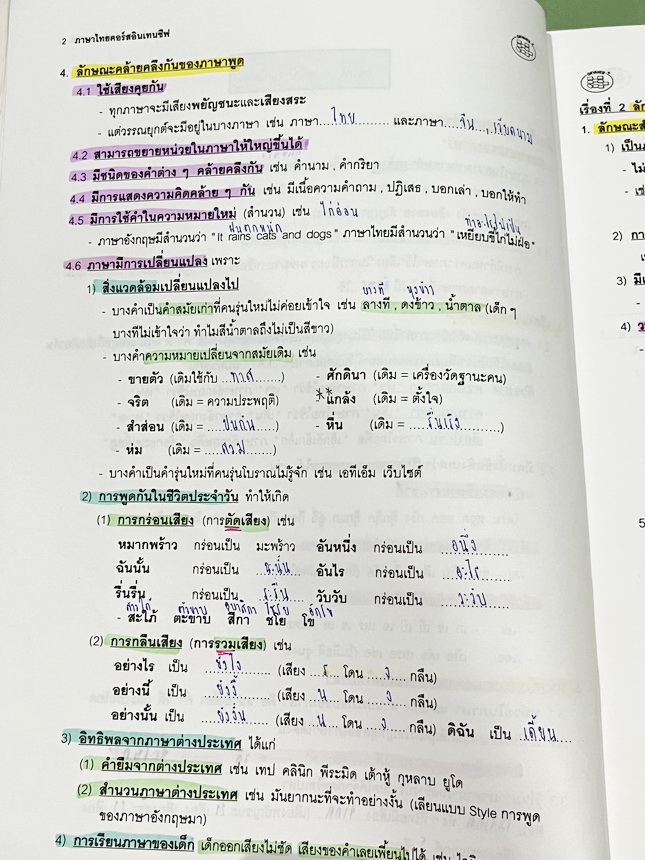 2 ภาษาไทยคอร์สอินเทนซีฟ
4. ลักษณะคล้ายคลึงกันของภาษาพูด
4.1 ใช้เสียงคุยกัน
- ทุกภาษาจะมีเสียงพยัญชนะและเสียงสระ
- แต่วรรณยุกต์จะมีอยู่ในบางภาษา เช่น ภาษา....ไทย........... และภาษา....จีน...,เวียดนาม
4.2 สามารถขยายหน่วยในภาษาให้ใหญ่ขึ้นได้
4.3 มีชนิดของคำต่าง ๆ คล้ายคลึงกัน เช่น คำนาม , คำกริยา
4.4 มีการแสดงความคิดคล้าย ๆ กัน เช่น มีเนื้อความคำถาม , ปฏิเสธ , บอกเล่า , บอกให้ทำ
4.5 มีการใช้คำในความหมายใหม่ (สำนวน) เช่น ไก่อ่อน
ฝนตกหนัก ทำอะไรไม่เป็น
- ภาษาอังกฤษมีสำนวนว่า "It rains cats and dogs" ภาษาไทยมีสำนวนว่า "เหยียบขี้ไก่ไม่ฝ่อ"
4.6 ภาษามีการเปลี่ยนแปลง เพราะ
1) สิ่งแวดล้อมเปลี่ยนแปลงไป
บางที หุงข้าว
- บางคำเป็นคำสมัยเก่าที่คนรุ่นใหม่ไม่ค่อยเข้าใจ เช่น ลางที , ดงข้าว , น้ำตาล (เด็ก ๆ
บางทีไม่เข้าใจว่า ทำไมสีน้ำตาลถึงไม่เป็นสีขาว)
- บางคำความหมายเปลี่ยนจากสมัยเดิม เช่น
- ขายตัว (เดิมใช้กับ ...ทาส.......) - ศักดินา (เดิม = เครื่องวัดฐานะคน)
- จริต (เดิม = ความประพฤติ) ** แกล้ง (เดิม = ตั้งใจ)
- สำส่อน (เดิม = ....ปนกัน.....) - หื่น (เดิม = ....รื่นเริง..........)
- ห่ม (เดิม = ....สวม......)
- บางคำเป็นคำรุ่นใหม่ที่คนรุ่นโบราณไม่รู้จัก เช่น เอทีเอ็ม เว็บไซต์
2) การพูดกันในชีวิตประจำวัน ทำให้เกิด
(1) การกร่อนเสียง (การตัดเสียง) เช่น
หมากพร้าว กร่อนเป็น มะพร้าว อันหนึ่ง กร่อนเป็น ...อนึ่ง.......
ฉันนั้น กร่อนเป็น ...ฉะนั้น... อันไร กร่อนเป็น ...อะไร.......
รื่นรื่น กร่อนเป็น ...ระรื่น... วับวับ กร่อนเป็น ...วะวับ.......
สาวใภ้ ตัวขาบ อุบาสิกา ไชโย
- สะใภ้ ตะขาบ สีกา ชโย โข
(2) การกลืนเสียง (การรวมเสียง) เช่น
อย่างไร เป็น ....ยังไง...... (เสียง ...ร... โดน ...ง... กลืน)
อย่างนี้ เป็น ....ยังงี้...... (เสียง ...น... โดน ...ง... กลืน)
อย่างนั้น เป็น ....ยังงั้น...... (เสียง ...น... โดน ...ง... กลืน) ดิฉัน เป็น ...เดี๊ยน....
3) อิทธิพลจากภาษาต่างประเทศ ได้แก่
(1) คำยืมจากต่างประเทศ เช่น เทป คลินิก พีระมิด เต้าหู้ กุหลาบ ยูโด
(2) สำนวนภาษาต่างประเทศ เช่น มันยากนะที่จะทำอย่างงั้น (เลียนแบบ Style การพูด
ของภาษาอังกฤษมา)
4) การเรียนภาษาของเด็ก เด็กออกเสียงไม่ชัด เสียงของคำเลยเพี้ยนไปได้ เช่น
เรื่องที่ 2
1.
1) เป็น
2)
3)
4)
5